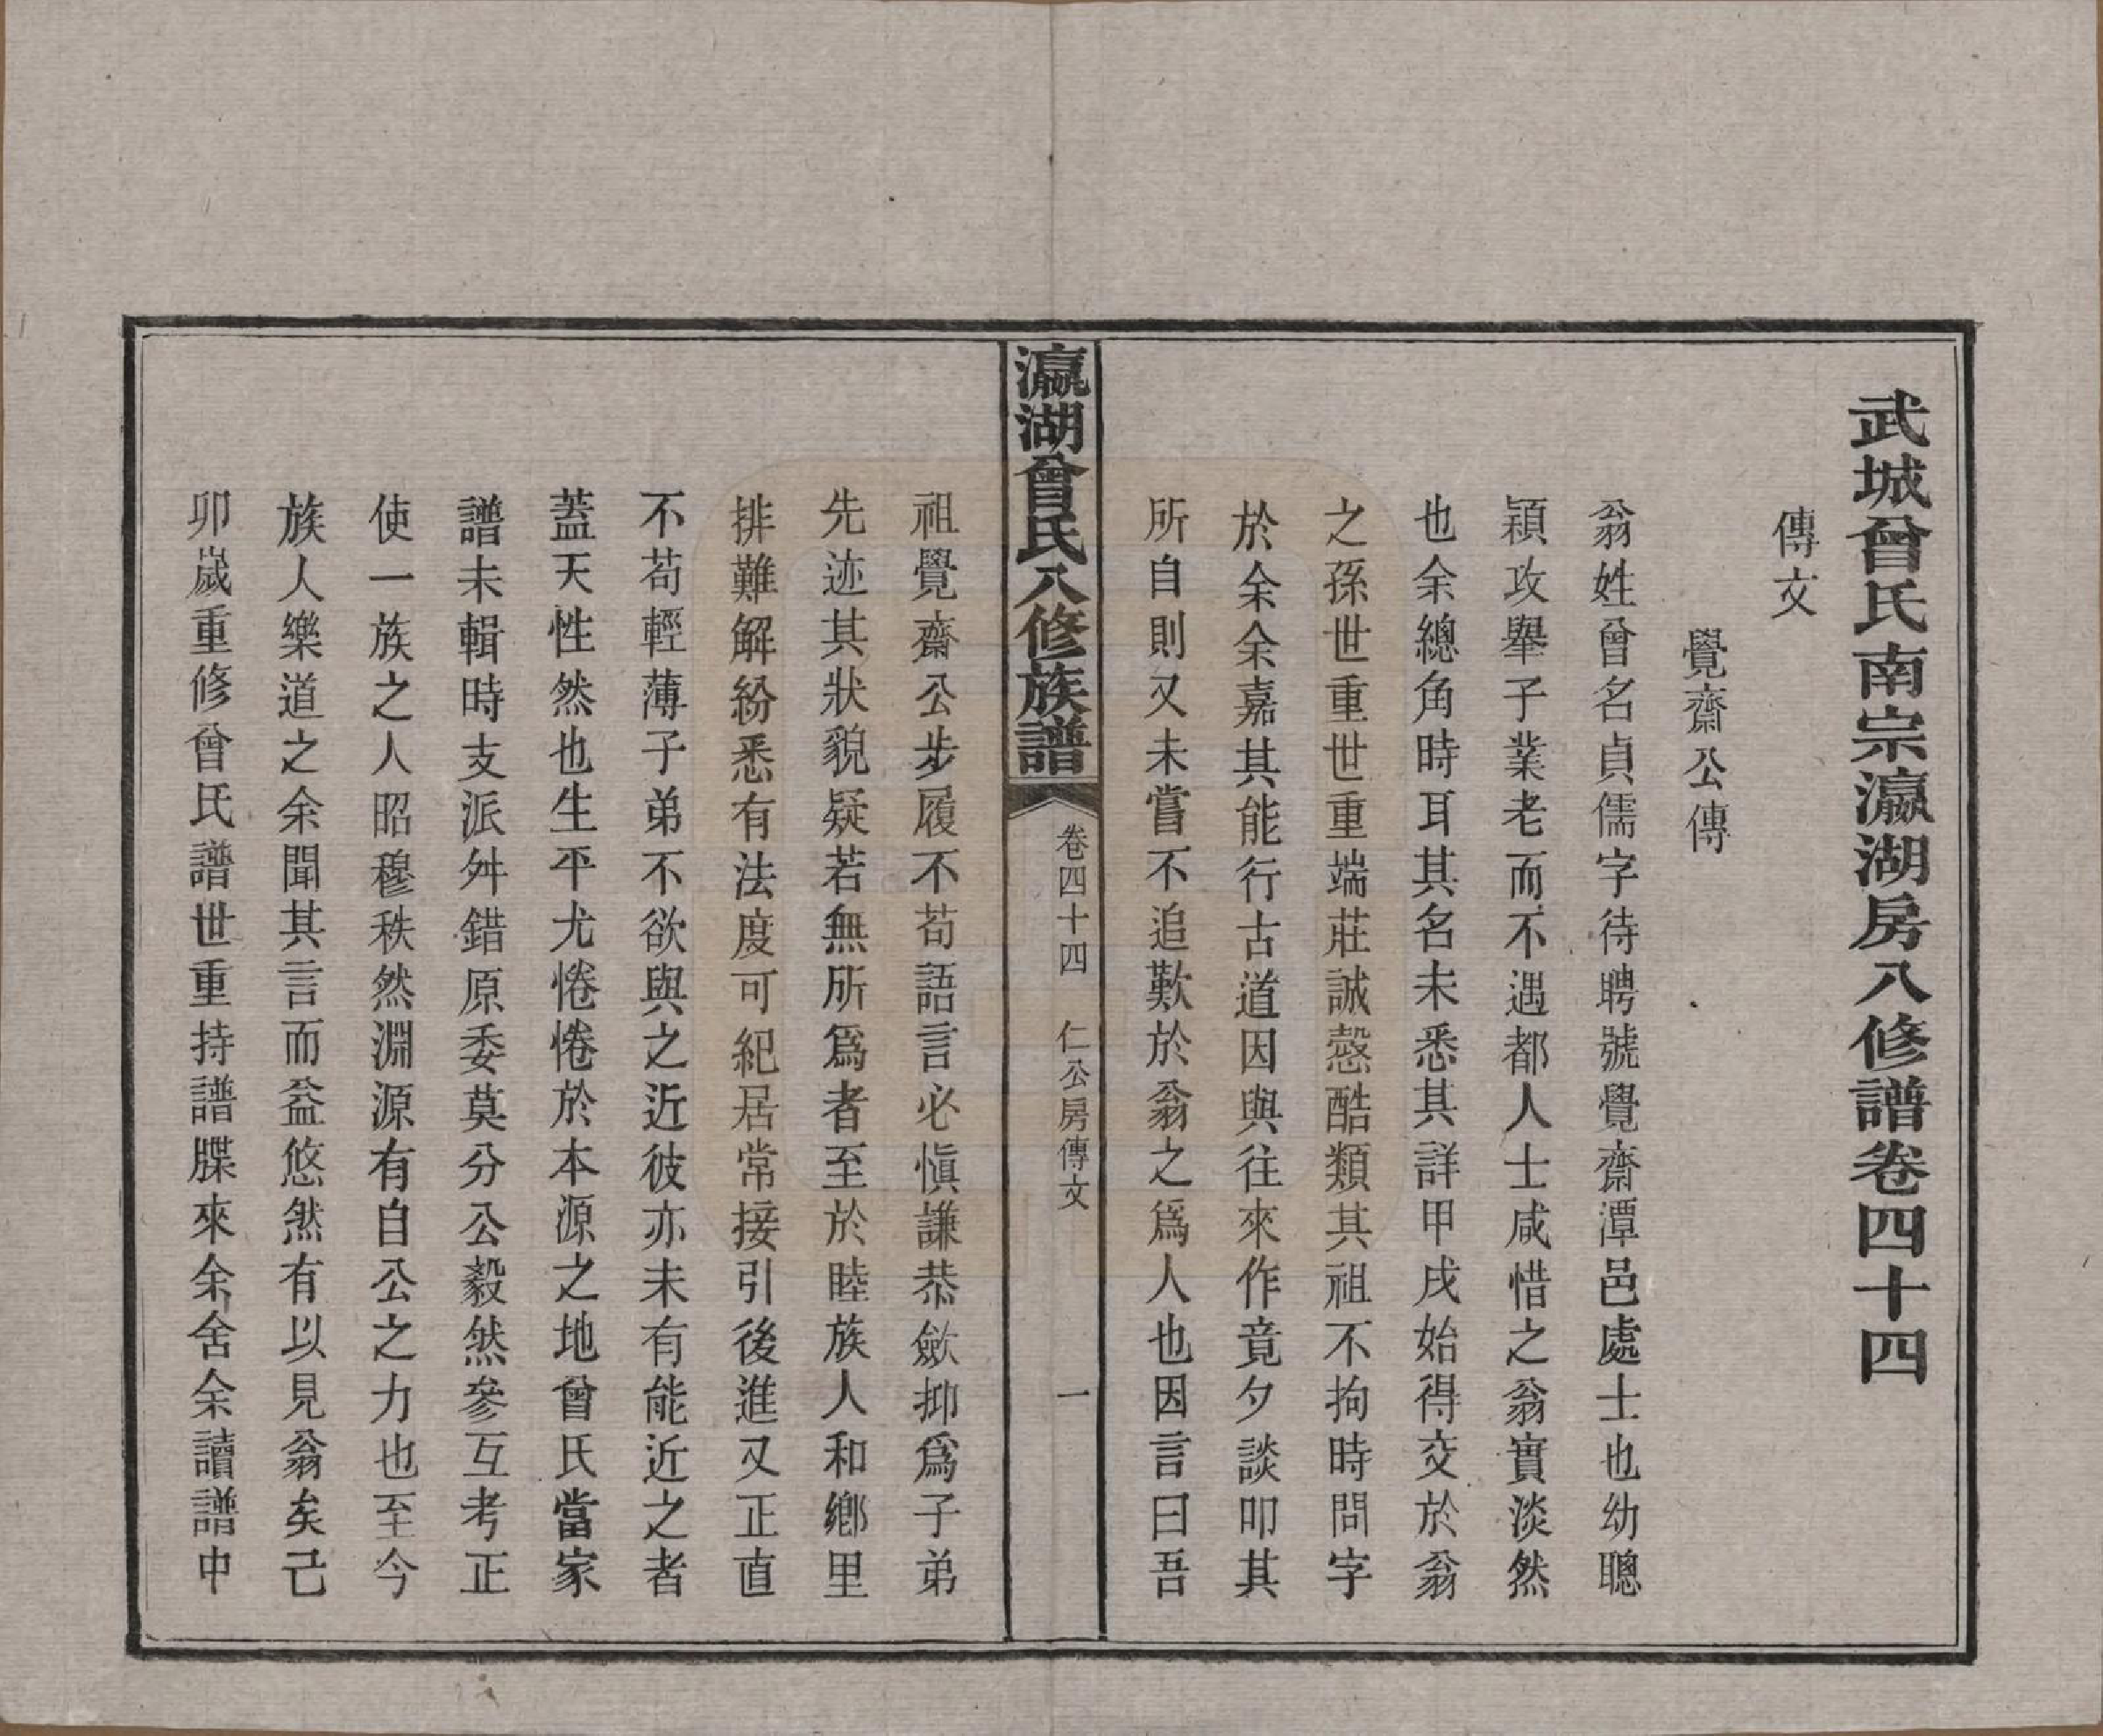 武城曾氏南宗瀛湖房八修譜卷四十四
傳文
覺齋公傳
翁姓曾名貞儒字待聘號覺齋潭邑處士也幼聰
穎攻舉子業老而不遇都人士咸惜之翁實淡然
也余總角時耳其名未悉其詳甲戌始得交於翁
之孫世重世重端莊誠慤酷類其祖不拘時問字
於余余嘉其能行古道因與往來作竟夕談叩其
所自則又未嘗不追歎於翁之爲人也因言曰吾
瀛湖曾氏八修族譜
卷四十四 仁公房傳文 一
祖覺齋公步履不苟語言必慎謙恭斂抑爲子弟
先迹其狀貌疑若無所爲者至於睦族人和鄉里
排難解紛悉有法度可紀居常接引後進又正直
不苟輕薄子弟不欲與之近彼亦未有能近之者
蓋天性然也生平尤惓惓於本源之地曾氏當家
譜未輯時支派舛錯原委莫分公毅然參互考正
使一族之人昭穆秩然淵源有自公之力也至今
族人樂道之余聞其言而益悠然有以見翁矣己
卯歲重修曾氏譜世重持譜牒來余舍余讀譜中